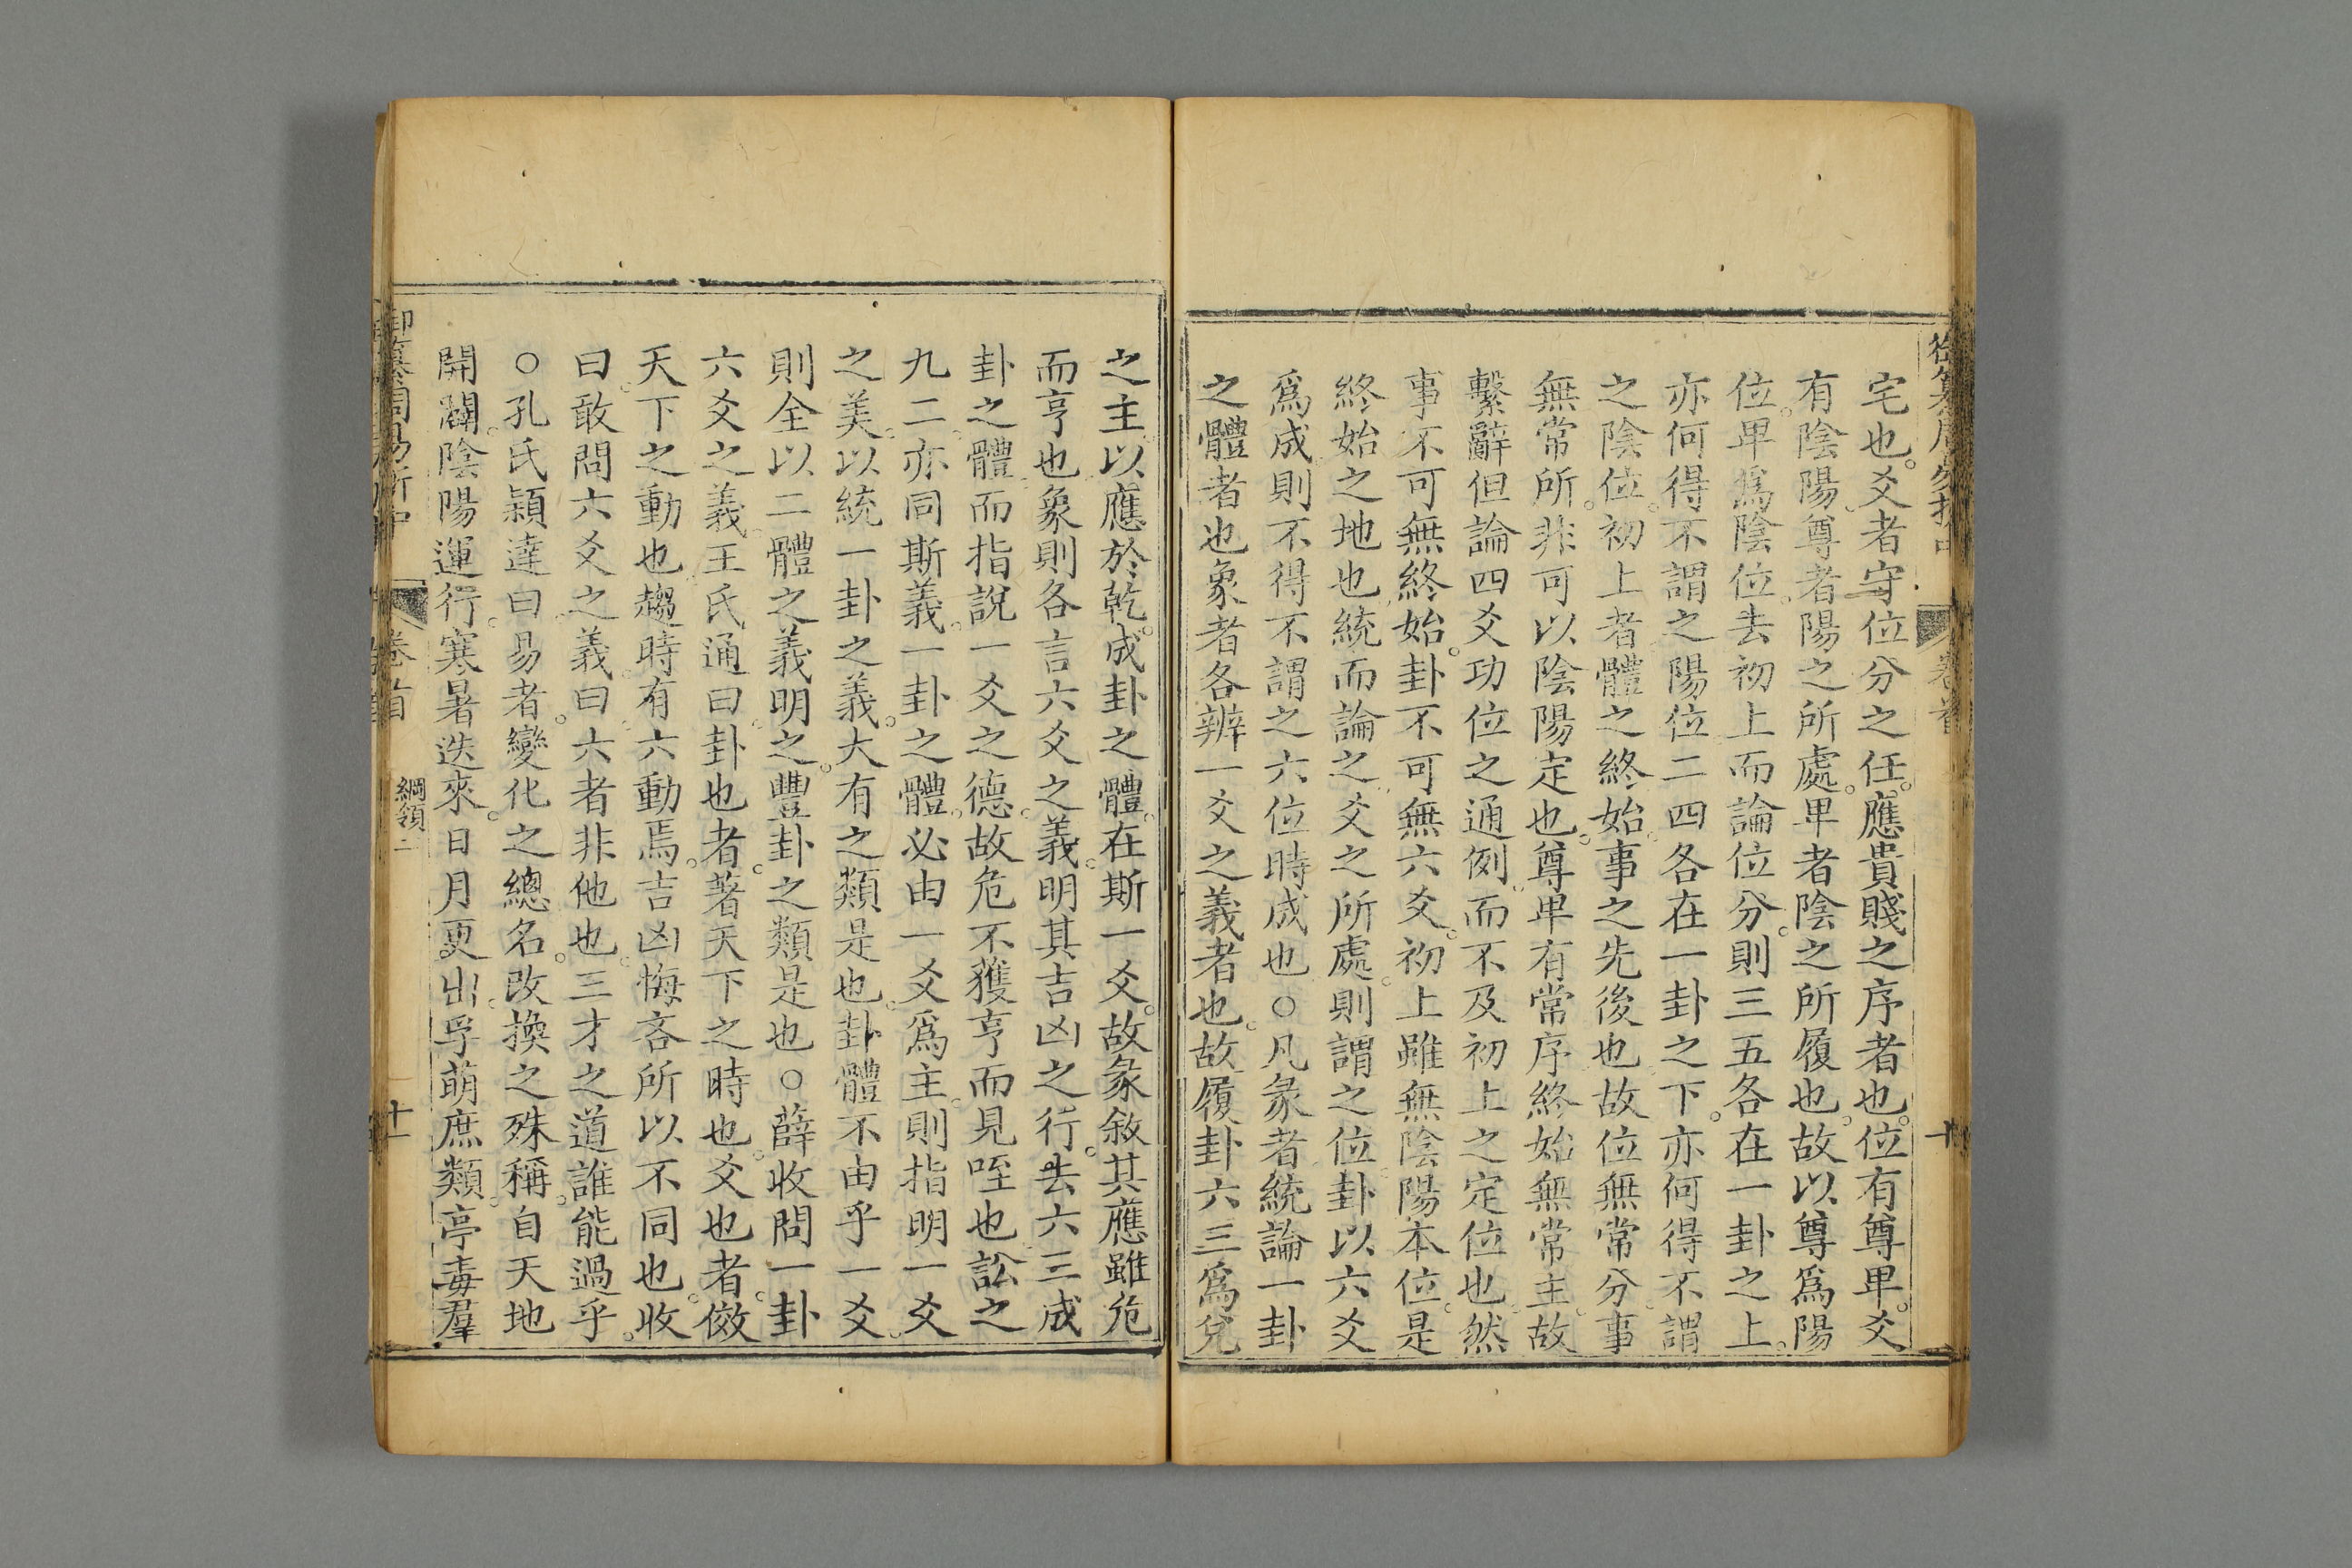 御纂周易折中 卷首 十
宅也。爻者守位分之任。應貴賤之序者也。位有尊卑。爻
有陰陽。尊者陽之所處。卑者陰之所履也。故以尊爲陽
位。卑爲陰位。去初上而論位分。則三五各在一卦之上。
亦何得不謂之陽位。二四各在一卦之下。亦何得不謂
之陰位。初上者體之終始。事之先後也。故位無常分。事
無常所。非可以陰陽定也。尊卑有常序。終始無常主。故
繫辭但論四爻功位之通例。而不及初上之定位也。然
事不可無終始。卦不可無六爻。初上雖無陰陽本位。是
終始之地也。統而論之。爻之所處。則謂之位。卦以六爻
爲成。則不得不謂之六位時成也○凡彖者統論一卦
之體者也。象者各辨一爻之義者也。故履卦六三。爲兌
之主。以應於乾。成卦之體。在斯一爻。故彖敘其應。雖危
而亨也。象則各言六爻之義。明其吉凶之行。去六三成
卦之體。而指說一爻之德。故危不獲亨而見咥也。訟之
九二。亦同斯義。一卦之體。必由一爻爲主。則指明一爻
之美。以統一卦之義。大有之類是也。卦體不由乎一爻。
則全以二體之義明之。豐卦之類是也○薛收問一卦
六爻之義。王氏通曰。卦也者。著天下之時也。爻也者。傚
天下之動也。趨時有六動焉。吉凶悔吝所以不同也。收
曰。敢問六爻之義。曰六者非他也。三才之道。誰能過乎。
○孔氏穎達曰。易者。變化之總名。改換之殊稱。自天地
開闢。陰陽運行。寒暑迭來。日月更出。孚萌庶類。亭毒羣
御纂周易折中 卷首 綱領二 十一